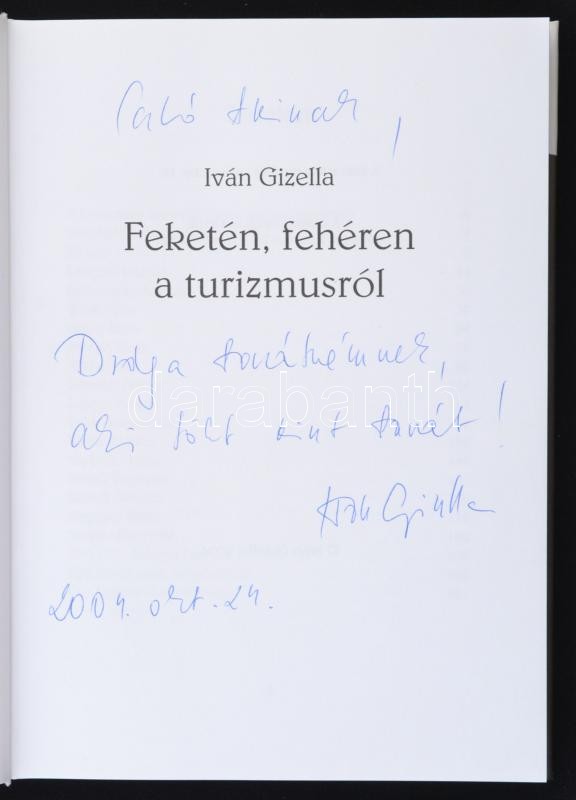 Iván Gizella
Feketén, fehéren
a turizmusról
Drága tanárnémnek,
aki több mint tanár!
darabanth
Iván Gizella
2004. okt. 24.